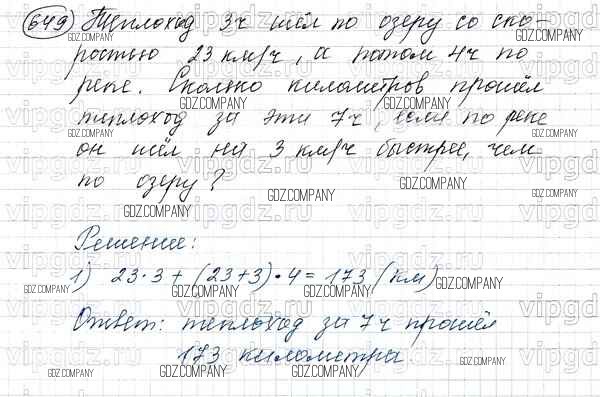 649 Теплоход 3ч шёл по озеру со ско-
ростью 23 км/ч, а потом 4ч по
реке. Сколько километров прошёл
теплоход за эти 7ч, если по реке
он шёл на 3 км/ч быстрее, чем
по озеру?
Решение:
1) 23·3 + (23+3)·4 = 173 (км)
Ответ: теплоход за 7ч прошёл
173 километра